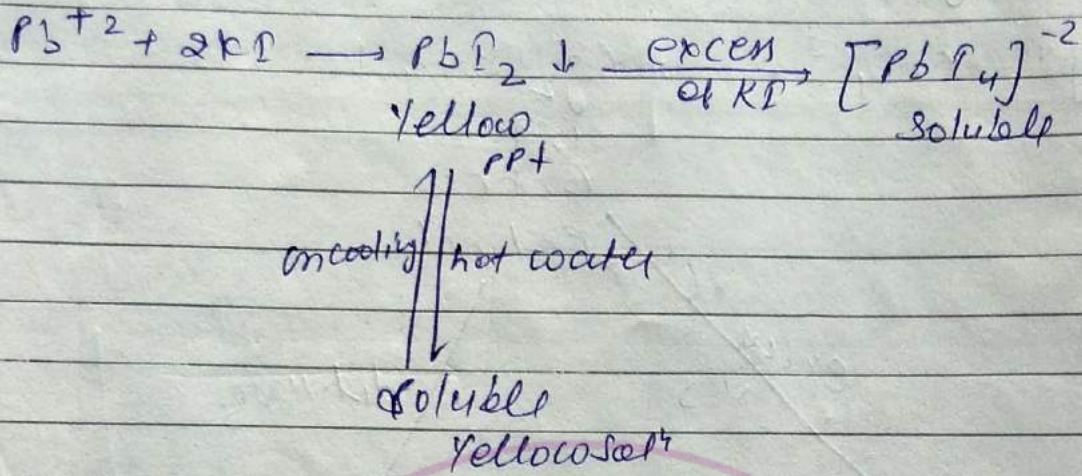 Pb⁺² + 2KI ⟶ PbI₂ ↓ excess of KI → [PbI₄]⁻²
Yellow soluble
ppt
on cooling hot water
soluble
Yellow solⁿ